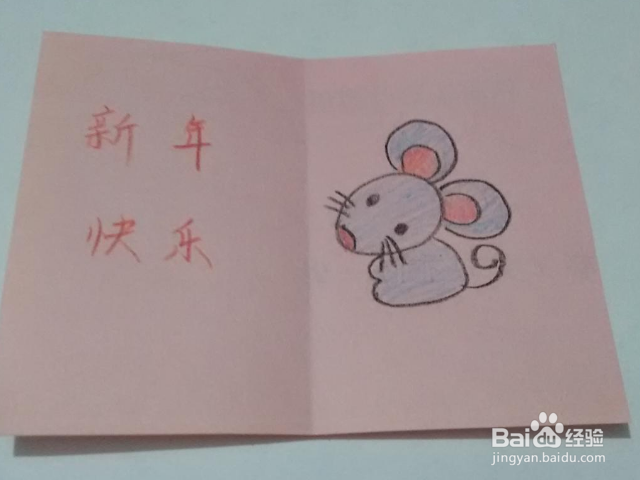 新年
快乐
Baidu经验
jingyan.baidu.com